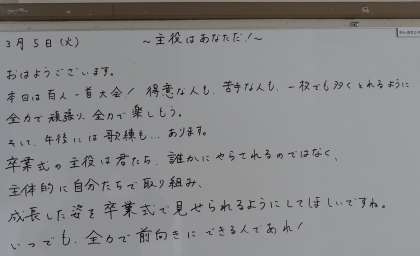 3月5日(火) ～主役はあなただ!～
おはようございます。
本日は百人一首大会! 得意な人も、苦手な人も、一枚でも多くとれるように
全力で頑張り、全力で楽しもう。
そして、午後には歌練も…あります。
卒業式の主役は君たち、誰かにやらされるのではなく、
主体的に自分たちで取り組み、
成長した姿を卒業式で見せられるようにしてほしいですね。
いつでも、全力で前向きにできる人であれ!